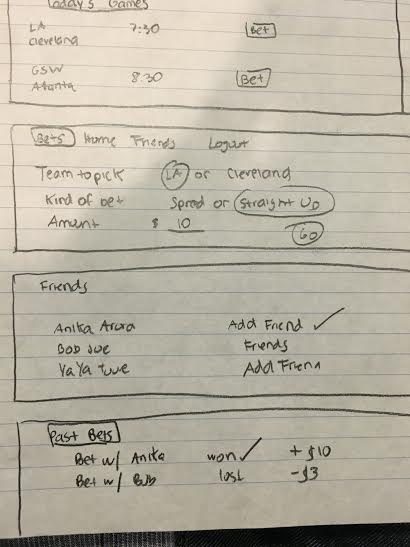 Today's Games
LA 7:30 Bet
Cleveland
GSW 8:30 Bet
Atlanta
Bets Home Friends Logout
Team to pick LA or Cleveland
Kind of bet Spread or Straight Up
Amount $ 10 Go
Friends
Anika Arora Add Friend ✓
Bob Jue Friends
YaYa Tuve Add Friend
Past Bets
Bet w/ Anika won ✓ + $10
Bet w/ Bob lost -$3